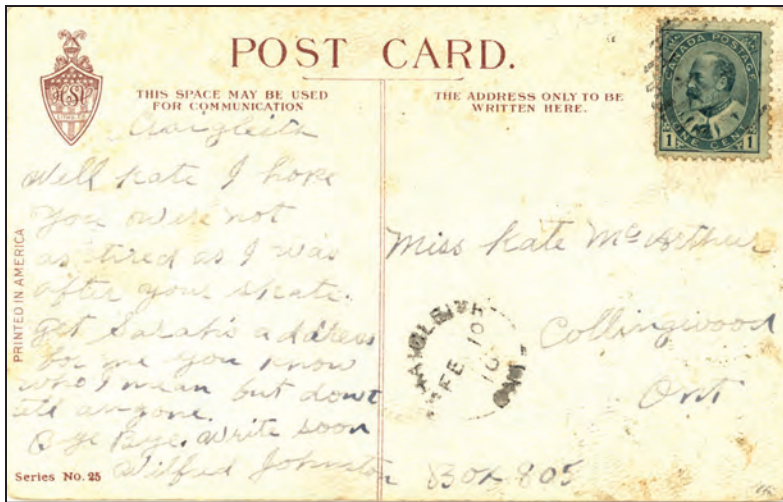 POST CARD.
THIS SPACE MAY BE USED
FOR COMMUNICATION
THE ADDRESS ONLY TO BE
WRITTEN HERE.
CANADA POSTAGE
1 ONE CENT 1
Craigleith
Well Kate I hope
you were not
as tired as I was
after your skate.
Get Sarah's address
for me you know
who I mean but dont
tell anyone.
Bye Bye. Write soon
Wilfred Johnston
Miss Kate McArthur
Collingwood
Ont
Box 805
FE 10
10
ONT
PRINTED IN AMERICA
Series No. 25